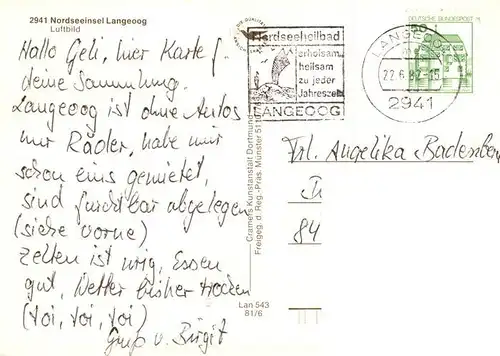 2941 Nordseeinsel Langeoog
Luftbild
Hallo Geli, hier Karte f.
deine Sammlung.
Langeoog ist ohne Autos
nur Räder, habe mir
schon eins gemietet,
sind furchtbar abgelegen
(siehe vorne)
Zelten ist urig, Essen
gut, Wetter bisher trocken
(toi, toi, toi)
Gruß v. Birgit
Cramers Kunstanstalt Dortmund
Freigeg. d. Reg.-Präs. Münster 51
Lan 543
81/6
Nordseeheilbad
erholsam,
heilsam
zu jeder
Jahreszeit
LANGEOOG
DEUTSCHE BUNDESPOST
50
LANGEOOG
22.6.82-15
2941
Frl. Angelika Badenberg
84